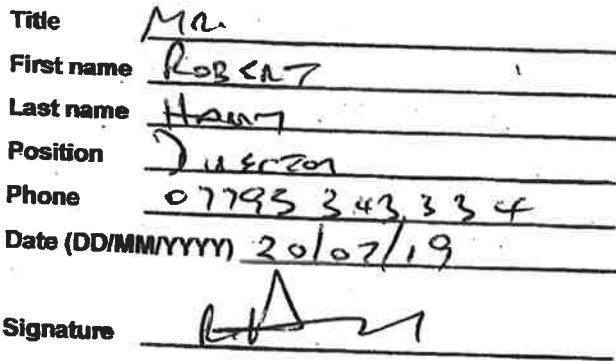 Title Mr.
First name ROBERT
Last name
Position DIRECTOR
Phone 07795 343 334
Date (DD/MM/YYYY) 20/07/19
Signature